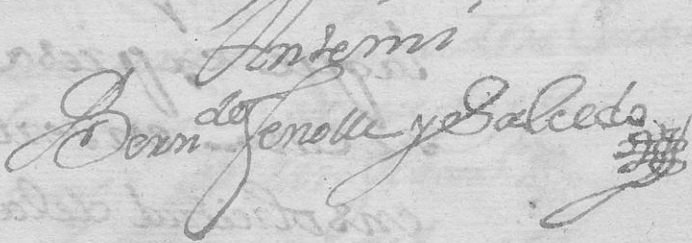 Antemi
Bern.do Fenolle y Salcedo